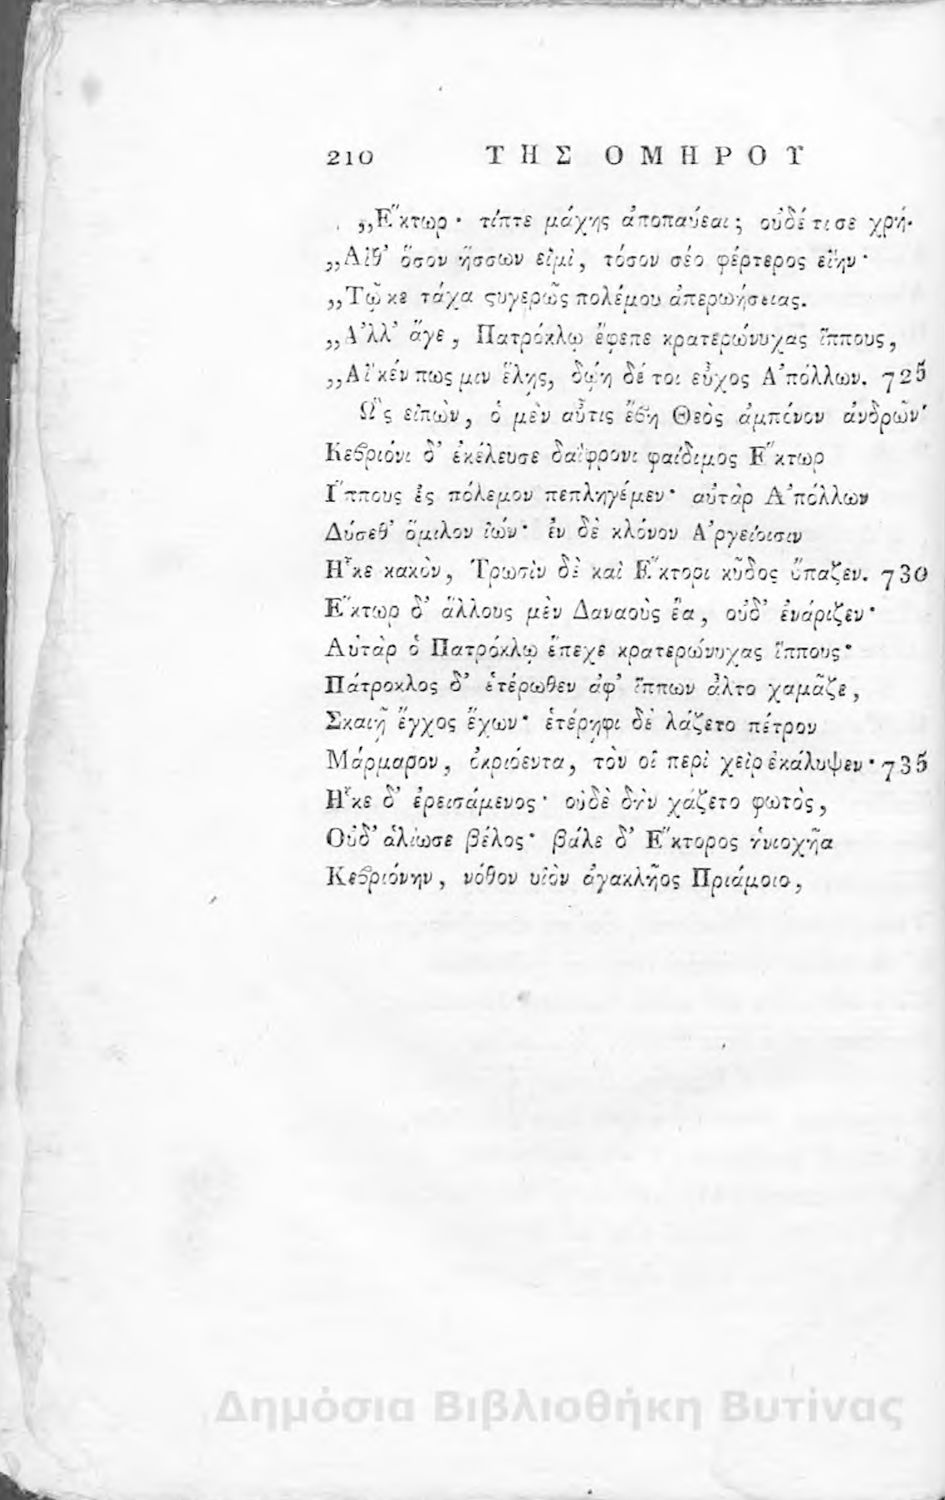 210 ΤΗΣ ΟΜΗΡΟΥ
„Ε῞κτωρ· τίπτε μάχης ἀποπαύεαι; οὐδέ τι σε χρή·
„Αἴθ' ὅσον ἥσσων εἰμὶ, τόσον σέο φέρτερος εἴην·
„Τῷ κε τάχα ϛυγερῶς πολέμου ἀπερωήσειας.
„Α᾿λλ' ἄγε, Πατρόκλῳ ἔφεπε κρατερώνυχας ἵππους,
„Αἴ κέν πως μιν ἕλῃς, δώῃ δέ τοι εὖχος Α᾿πόλλων. 725
Ω῝ς εἰπὼν, ὁ μὲν αὖτις ἔϐη Θεὸς ἀμπόνον ἀνδρῶν·
Κεϐριόνι δ' ἐκέλευσε δαΐφρονι φαίδιμος Ε῞κτωρ
Ι῞ππους ἐς πόλεμον πεπληγέμεν· αὐτὰρ Α᾿πόλλων
Δύσεθ' ὅμιλον ἰών· ἐν δὲ κλόνον Α᾿ργείοισιν
Η῟κε κακὸν, Τρωσὶν δὲ καὶ Ε῞κτορι κῦδος ὄπαζεν. 730
Ε῞κτωρ δ' ἄλλους μὲν Δαναοὺς ἔα, οὐδ' ἐνάριζεν·
Αὐτὰρ ὁ Πατρόκλῳ ἔπεχε κρατερώνυχας ἵππους·
Πάτροκλος δ' ἑτέρωθεν ἀφ' ἵππων ἆλτο χαμᾶζε,
Σκαιῇ ἔγχος ἔχων· ἑτέρηφι δὲ λάζετο πέτρον
Μάρμαρον, ὀκριόεντα, τὸν οἱ περὶ χεὶρ ἐκάλυψεν· 735
Η῟κε δ' ἐρεισάμενος· οὐδὲ δὴν χάζετο φωτὸς,
Οὐδ' ἁλίωσε βέλος· βάλε δ' Ε῞κτορος ἡνιοχῆα
Κεϐριόνην, νόθον υἱὸν ἀγακλῆος Πριάμοιο,
Δημόσια Βιβλιοθήκη Βυτίνας